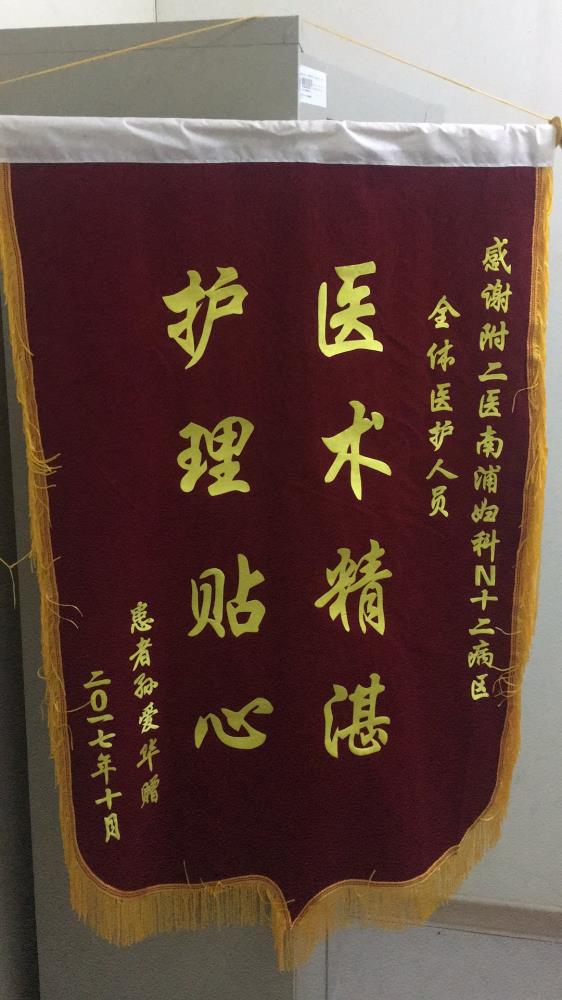 感谢附二医南浦妇科N十二病区
全体医护人员
医术精湛
护理贴心
患者孙爱华赠
二0一七年十月